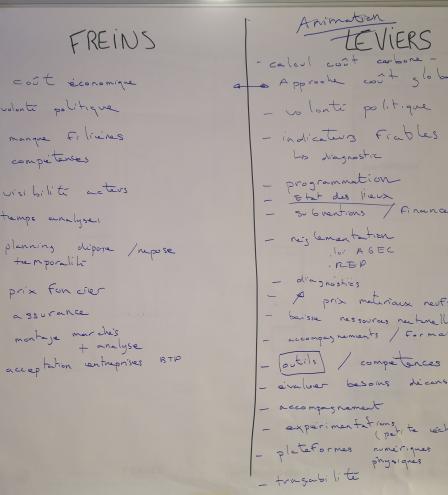 FREINS
coût économique
volonté politique
manque filières
compétences
visibilité acteurs
temps analyses
planning dépose / repose
temporalité
prix foncier
assurance
montage marchés
+ analyse
acceptation entreprises BTP
Animation
LEVIERS
- calcul coût carbone -
Approche coût glob
- volonté politique
- indicateurs fiables
diagnostic
- programmation
- Etat des lieux
- subventions / finance
- réglementation
. loi AGEC
. REP
- diagnostics
- prix matériaux neufs
- baisse ressources naturell
- accompagnements / forma
- outils / compétences
- évaluer besoins
- accompagnement
- expérimentations
(petite
- plateformes numériques
physiques
- traçabilité